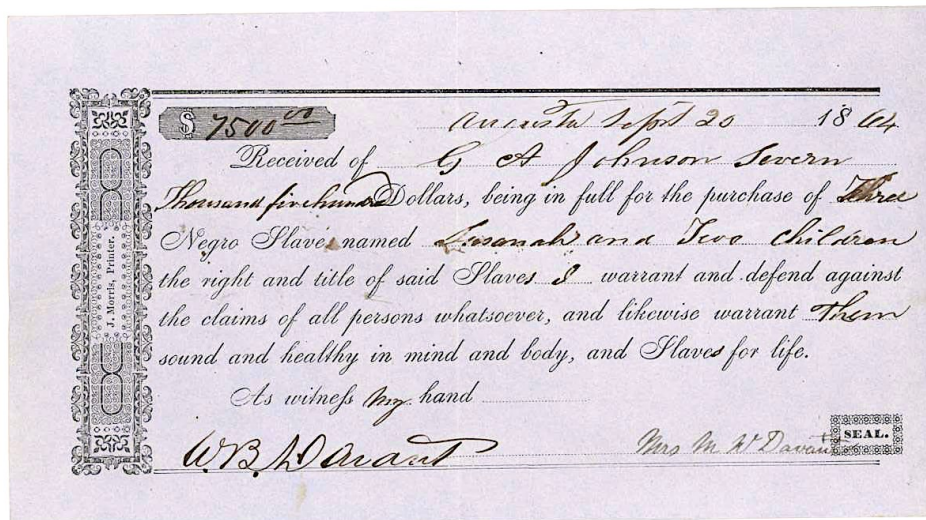 $ 7500 00
Augusta Sept 20 1864
Received of G A Johnson Severn
Thousand five hund Dollars, being in full for the purchase of Three
Negro Slaves named Susanah and Two Children
the right and title of said Slaves I warrant and defend against
the claims of all persons whatsoever, and likewise warrant Them
sound and healthy in mind and body, and Slaves for life.
As witness my hand
W.B. Davant
Mrs M W Davant
SEAL.
J. Morris, Printer.